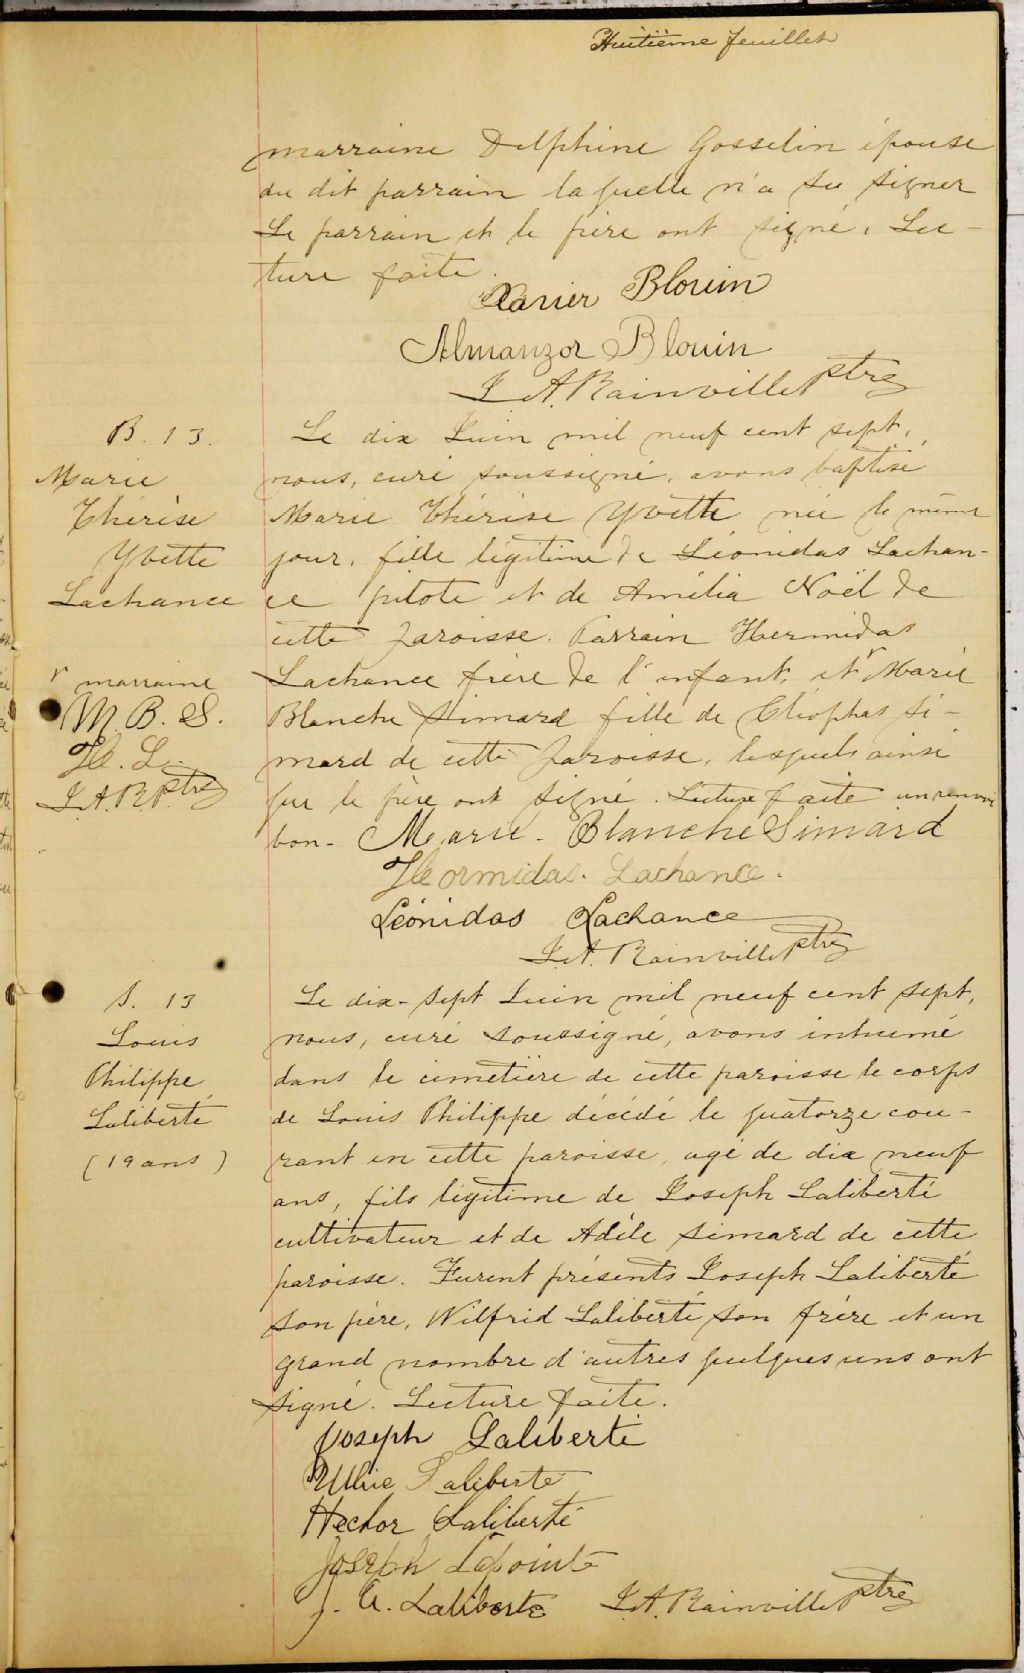 Huitième feuillet
marraine Delphine Gosselin épouse
du dit parrain laquelle n'a su signer
Le parrain et le père ont signé. Lec-
ture faite.
Xavier Blouin
Almanzor Blouin
J. A. Rainville Ptre
B. 13.
Marie
Thérèse
Yvette
Lachance
Le dix Juin mil neuf cent sept,
nous, curé soussigné, avons baptisé
Marie Thérèse Yvette née le même
jour, fille légitime de Léonidas Lachan-
ce pilote et de Amélia Noël de
cette paroisse. Parrain Hermidas
Lachance frère de l'enfant, et r Marie
Blanche Simard fille de Cléophas Si-
mard de cette paroisse, lesquels ainsi
que le père ont signé. Lecture faite un renvoi
bon-
r marraine
M. B. S.
H. L.
J. A. R. Ptre
Marie-Blanche Simard
Hormidas. Lachance.
Léonidas Lachance
J. A. Rainville Ptre
S. 13
Louis
Philippe
Laliberté
(19 ans)
Le dix-sept Juin mil neuf cent sept,
nous, curé soussigné, avons inhumé
dans le cimetière de cette paroisse le corps
de Louis Philippe décédé le quatorze cou-
rant en cette paroisse, agé de dix neuf
ans, fils légitime de Joseph Laliberté
cultivateur et de Adèle Simard de cette
paroisse. Furent présents Joseph Laliberté
son père, Wilfrid Laliberté son frère et un
grand nombre d'autres quelques uns ont
signé. Lecture faite.
Joseph Laliberté
Ulric Laliberté
Hector Laliberté
Joseph Lapointe
J. A. Laliberté J. A. Rainville Ptre